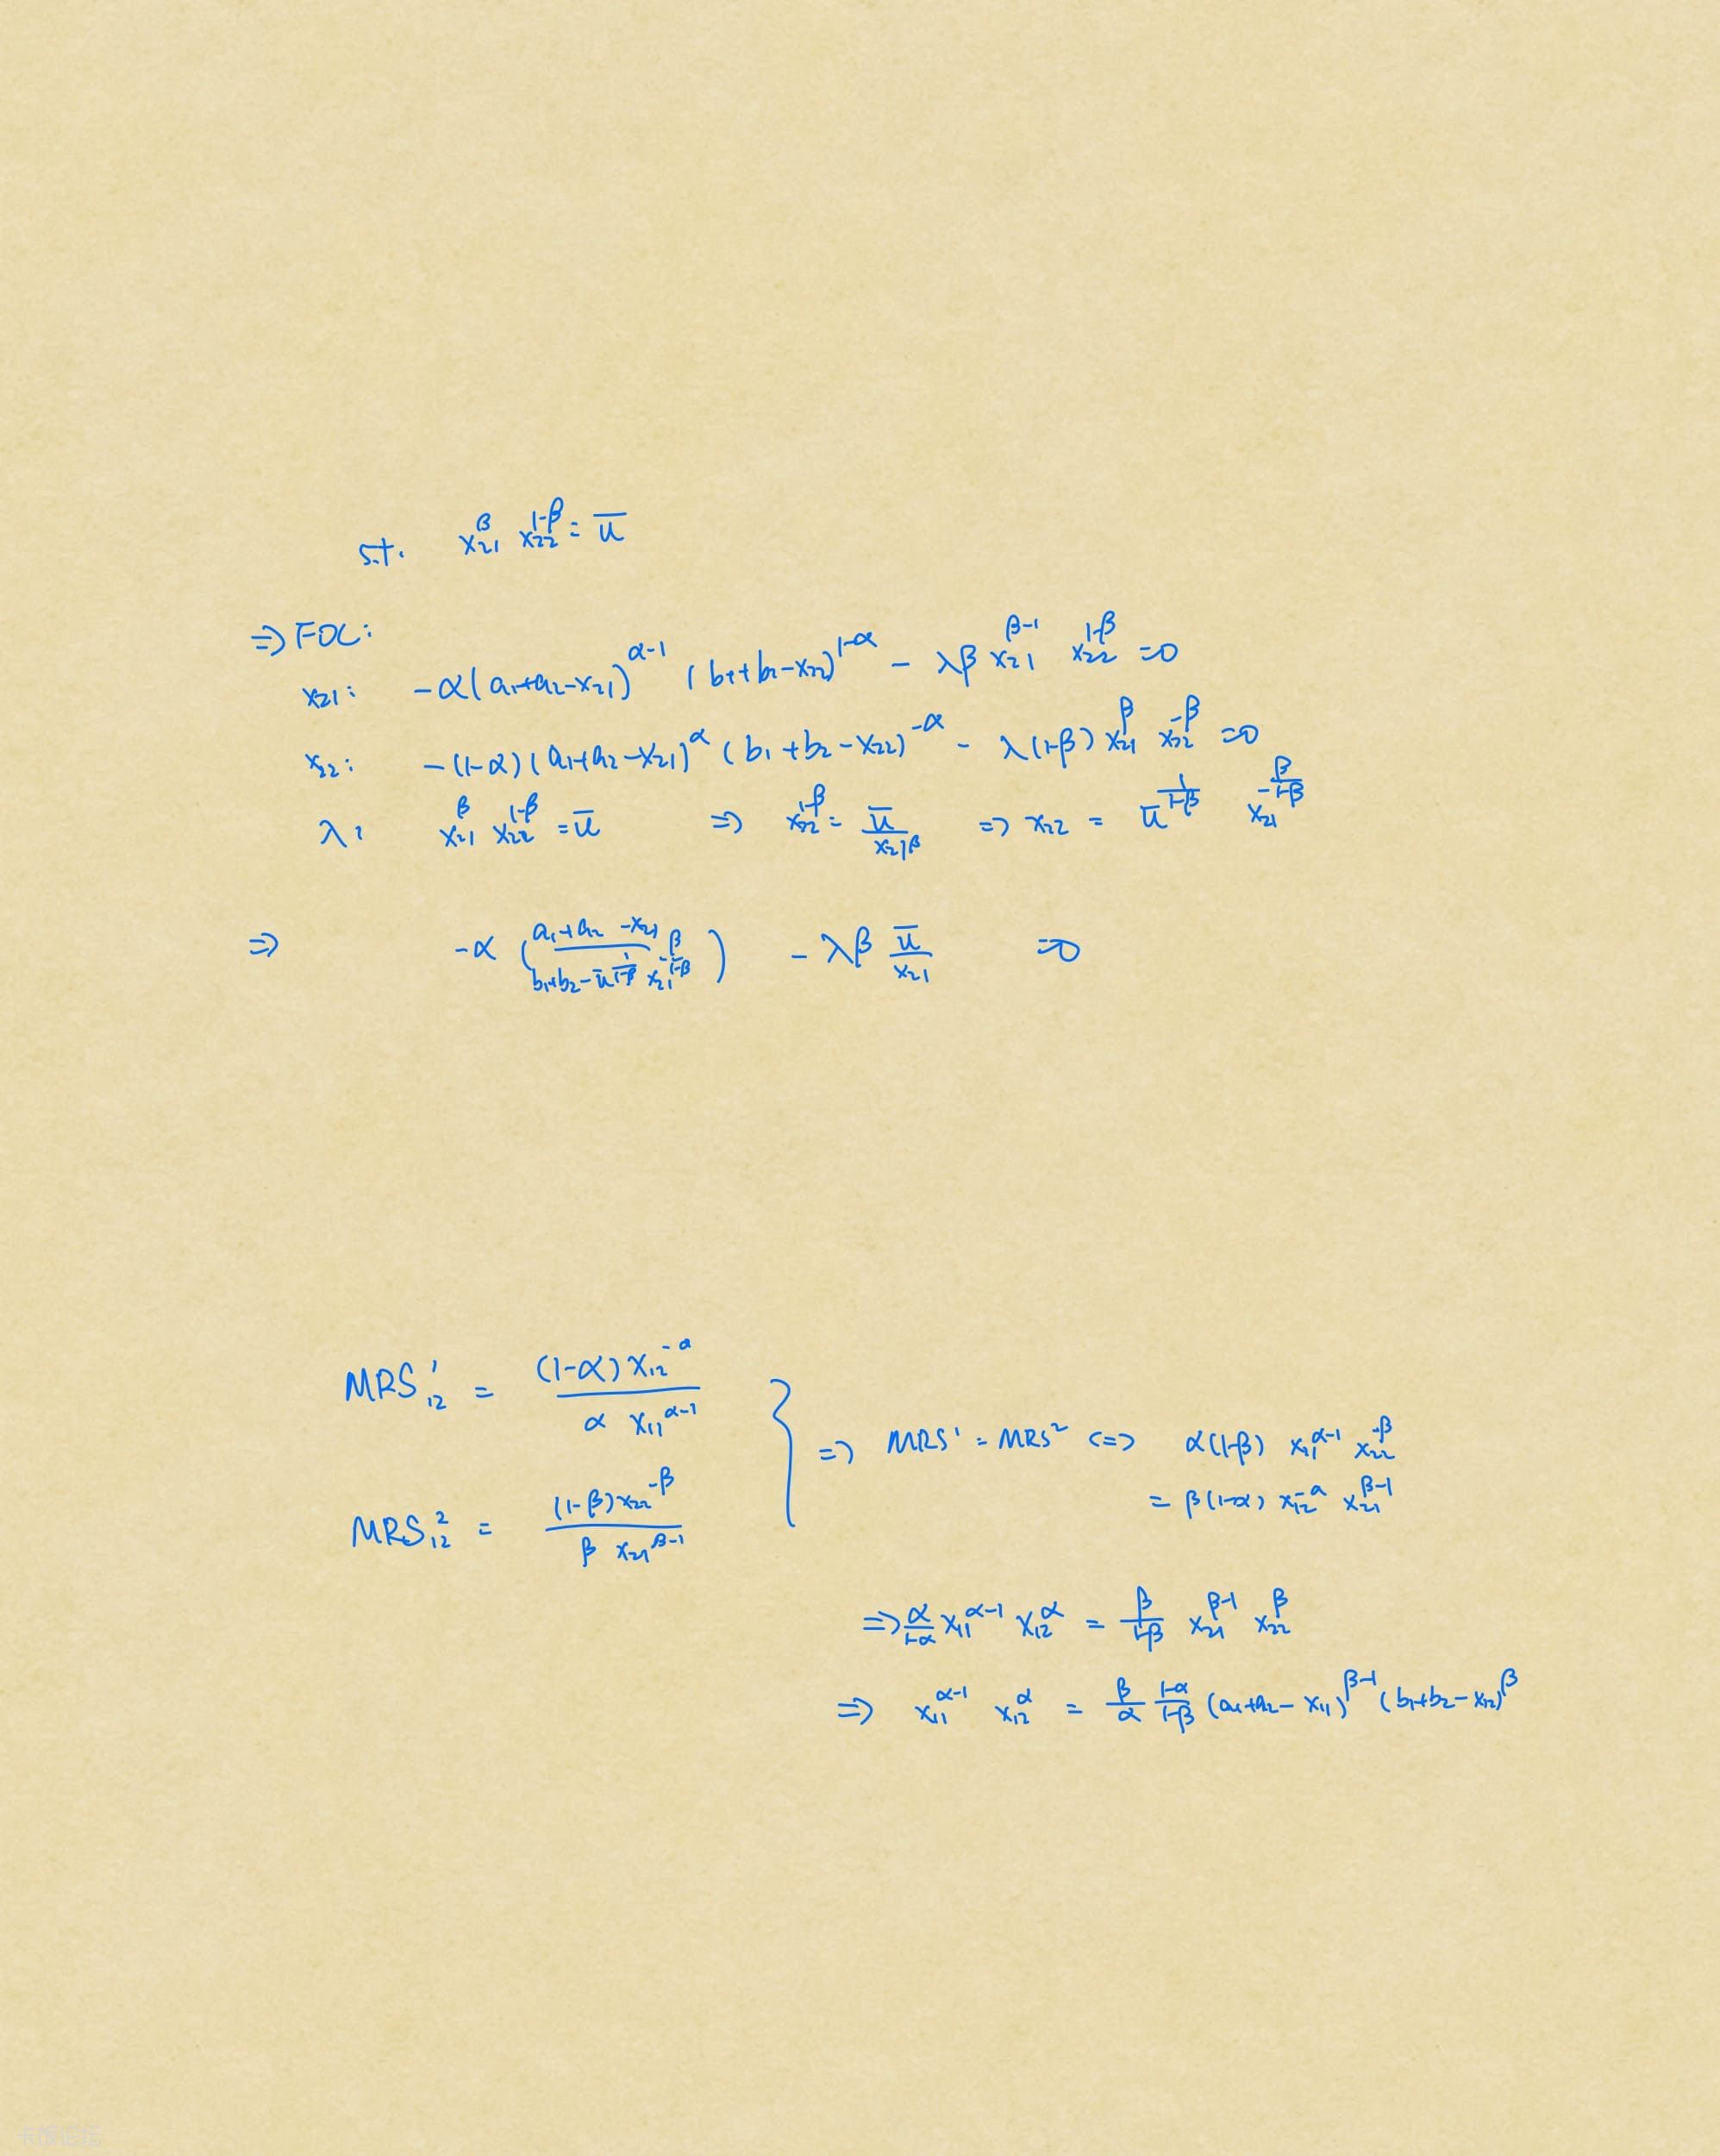 s.t. x₂₁^β x₂₂^{1-β} = ū
⇒ FOC:
x₂₁: -α(a₁+a₂-x₂₁)^{α-1} (b₁+b₂-x₂₂)^{1-α} - λβ x₂₁^{β-1} x₂₂^{1-β} =0
x₂₂: -(1-α)(a₁+a₂-x₂₁)^α (b₁+b₂-x₂₂)^{-α} - λ(1-β) x₂₁^β x₂₂^{-β} =0
λ: x₂₁^β x₂₂^{1-β} = ū ⇒ x₂₂^{1-β} = ū/x₂₁^β ⇒ x₂₂ = ū^{1/(1-β)} x₂₁^{-β/(1-β)}
⇒ -α ((a₁+a₂-x₂₁)/(b₁+b₂-ū^{1/(1-β)} x₂₁^{-β/(1-β)})) - λβ ū/x₂₁ =0
MRS¹₁₂ = (1-α)x₁₂^{-α} / α x₁₁^{α-1}
MRS²₁₂ = (1-β)x₂₂^{-β} / β x₂₁^{β-1}
⇒ MRS¹ = MRS² <=> α(1-β) x₁₁^{α-1} x₂₂^{-β}
= β(1-α) x₁₂^{-α} x₂₁^{β-1}
⇒ α/(1-α) x₁₁^{α-1} x₁₂^α = β/(1-β) x₂₁^{β-1} x₂₂^β
⇒ x₁₁^{α-1} x₁₂^α = β/α (1-α)/(1-β) (a₁+a₂-x₁₁)^{β-1} (b₁+b₂-x₁₂)^β